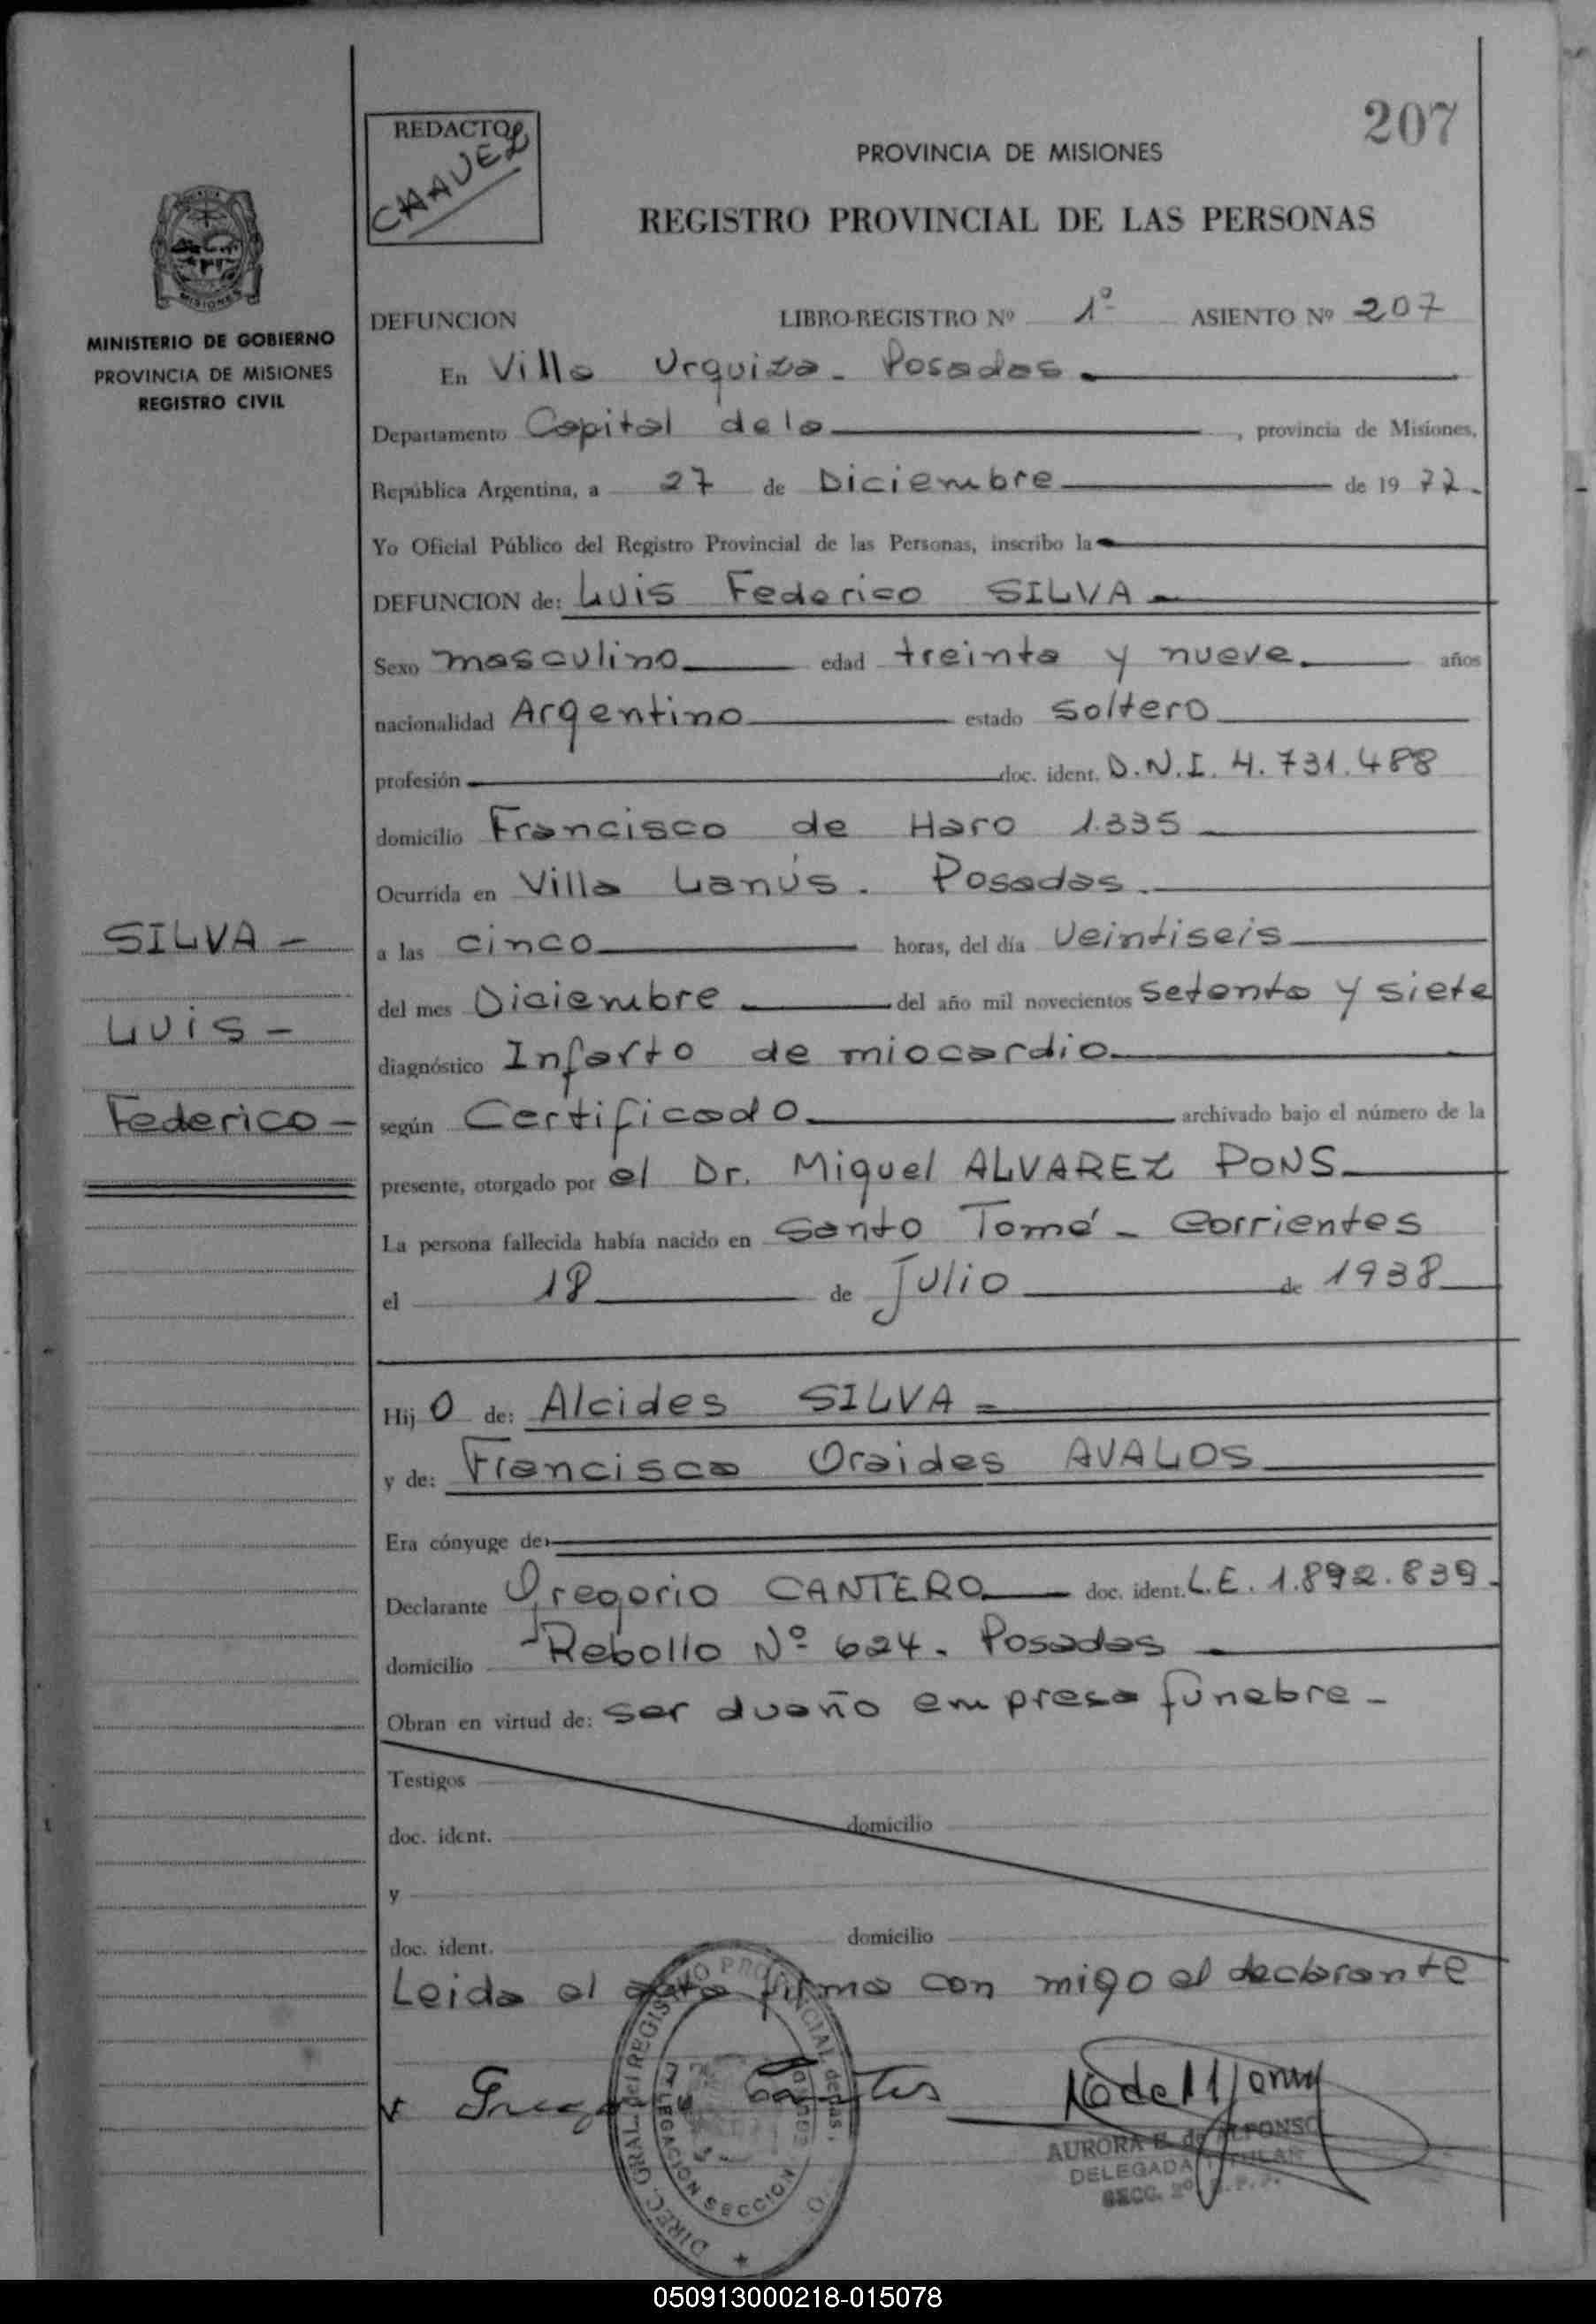 207
REDACTOR
CHAVEZ
PROVINCIA DE MISIONES
REGISTRO PROVINCIAL DE LAS PERSONAS
MISIONES
MINISTERIO DE GOBIERNO
PROVINCIA DE MISIONES
REGISTRO CIVIL
DEFUNCION LIBRO-REGISTRO Nº 1º ASIENTO Nº 207
En Villa Urquiza - Posadas
Departamento Capital de la, provincia de Misiones,
República Argentina, a 27 de Diciembre de 19 77.
Yo Oficial Público del Registro Provincial de las Personas, inscribo la
DEFUNCION de: Luis Federico SILVA
Sexo masculino edad treinta y nueve años
nacionalidad Argentino estado soltero
profesión doc. ident. D.N.I. 4.731.488
domicilio Francisco de Haro 1.335
Ocurrida en Villa Lanús. Posadas.
SILVA - a las cinco horas, del día veintiseis
del mes Diciembre del año mil novecientos setenta y siete
Luis - diagnóstico Infarto de miocardio
Federico - según Certificado archivado bajo el número de la
presente, otorgado por el Dr. Miguel ALVAREZ PONS
La persona fallecida había nacido en Santo Tomé - Corrientes
el 18 de Julio de 1938
Hij o de: Alcides SILVA
y de: Francisca Oraides AVALOS
Era cónyuge de:
Declarante Gregorio CANTERO doc. ident. L.E. 1.892.839.
domicilio Rebollo Nº 624. Posadas
Obran en virtud de: ser dueño empresa fúnebre -
Testigos
doc. ident. domicilio
y
doc. ident. domicilio
Leida el acta firma con migo el declarante
DIREC. GRAL. del REGISTRO PROVINCIAL de las
DELEGACION SECCION
AURORA E. de ALFONSO
DELEGADA TITULAR
SECC. 2º
050913000218-015078